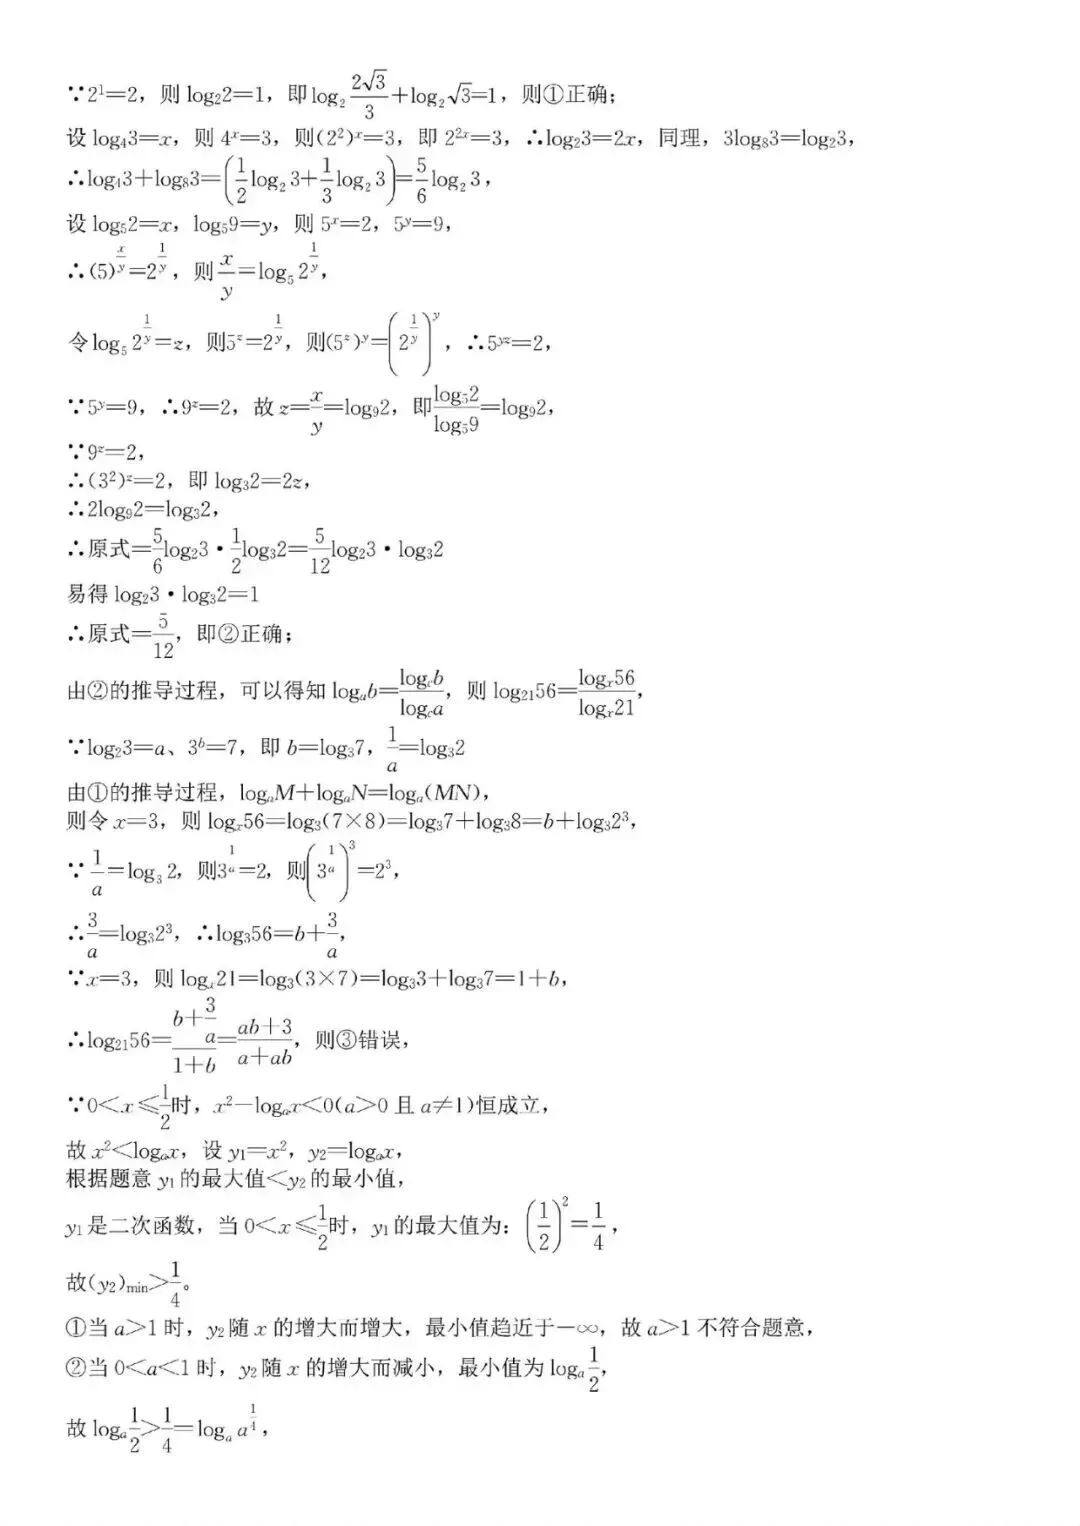 ∵2¹=2，则 log₂2=1，即 log₂(2√3/3)+log₂√3=1，则①正确；
设 log₄3=x，则 4ˣ=3，则(2²)ˣ=3，即 2²ˣ=3，∴log₂3=2x，同理，3log₈3=log₂3，
∴log₄3+log₈3=(1/2 log₂3+1/3 log₂3)=5/6 log₂3，
设 log₅2=x，log₅9=y，则 5ˣ=2，5ʸ=9，
∴(5)^(x/y)=2^(1/y)，则 x/y=log₅2^(1/y)，
令 log₅2^(1/y)=z，则5ᶻ=2^(1/y)，则(5ᶻ)ʸ=(2^(1/y))ʸ，∴5ʸᶻ=2，
∵5ʸ=9，∴9ᶻ=2，故 z=x/y=log₉2，即 log₅2/log₅9=log₉2，
∵9ᶻ=2，
∴(3²)ᶻ=2，即 log₃2=2z，
∴2log₉2=log₃2，
∴原式=5/6 log₂3·1/2 log₃2=5/12 log₂3·log₃2
易得 log₂3·log₃2=1
∴原式=5/12，即②正确；
由②的推导过程，可以得知 logₐb=log_c b/log_c a，则 log₂₁56=logₓ56/logₓ21，
∵log₂3=a、3ᵇ=7，即 b=log₃7，1/a=log₃2
由①的推导过程，logₐM+logₐN=logₐ(MN)，
则令 x=3，则 logₓ56=log₃(7×8)=log₃7+log₃8=b+log₃2³，
∵1/a=log₃2，则3^(1/a)=2，则(3^(1/a))³=2³，
∴3/a=log₃2³，∴log₃56=b+3/a，
∵x=3，则 logₓ21=log₃(3×7)=log₃3+log₃7=1+b，
∴log₂₁56=(b+3/a)/(1+b)=(ab+3)/(a+ab)，则③错误，
∵0<x≤1/2时，x²-logₐx<0(a>0 且 a≠1)恒成立，
故 x²<logₐx，设 y₁=x²，y₂=logₐx，
根据题意 y₁的最大值<y₂的最小值，
y₁是二次函数，当 0<x≤1/2时，y₁的最大值为：(1/2)²=1/4，
故(y₂)min>1/4。
①当 a>1 时，y₂随 x 的增大而增大，最小值趋近于-∞，故 a>1 不符合题意，
②当 0<a<1 时，y₂随 x 的增大而减小，最小值为 logₐ1/2，
故 logₐ1/2>1/4=logₐa^(1/4)，